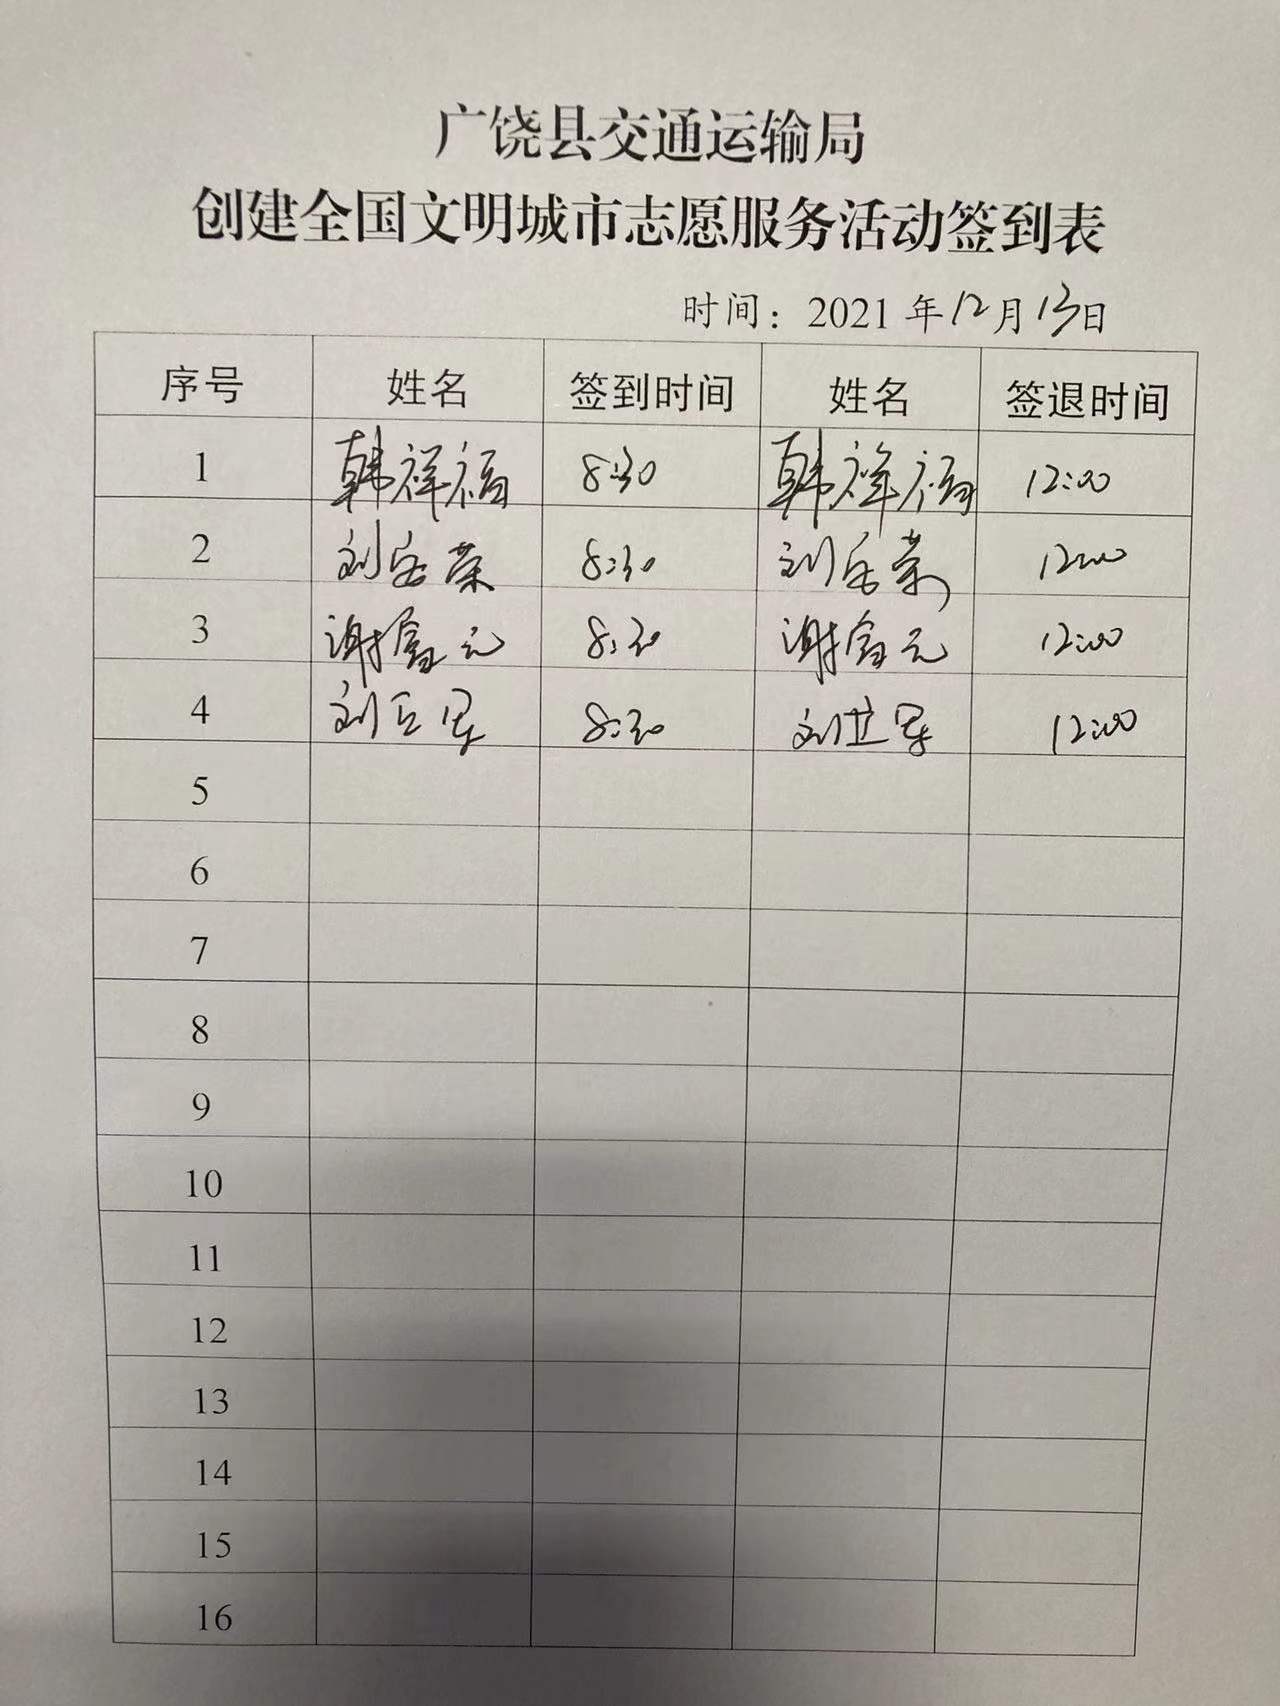 广饶县交通运输局
创建全国文明城市志愿服务活动签到表
时间：2021年12月13日
序号 姓名 签到时间 姓名 签退时间
1 韩祥福 8:30 韩祥福 12:00
2 刘 荣 8:30 刘 荣 12:00
3 谢富元 8:30 谢富元 12:00
4 刘 8:30 刘 12:00
5
6
7
8
9
10
11
12
13
14
15
16